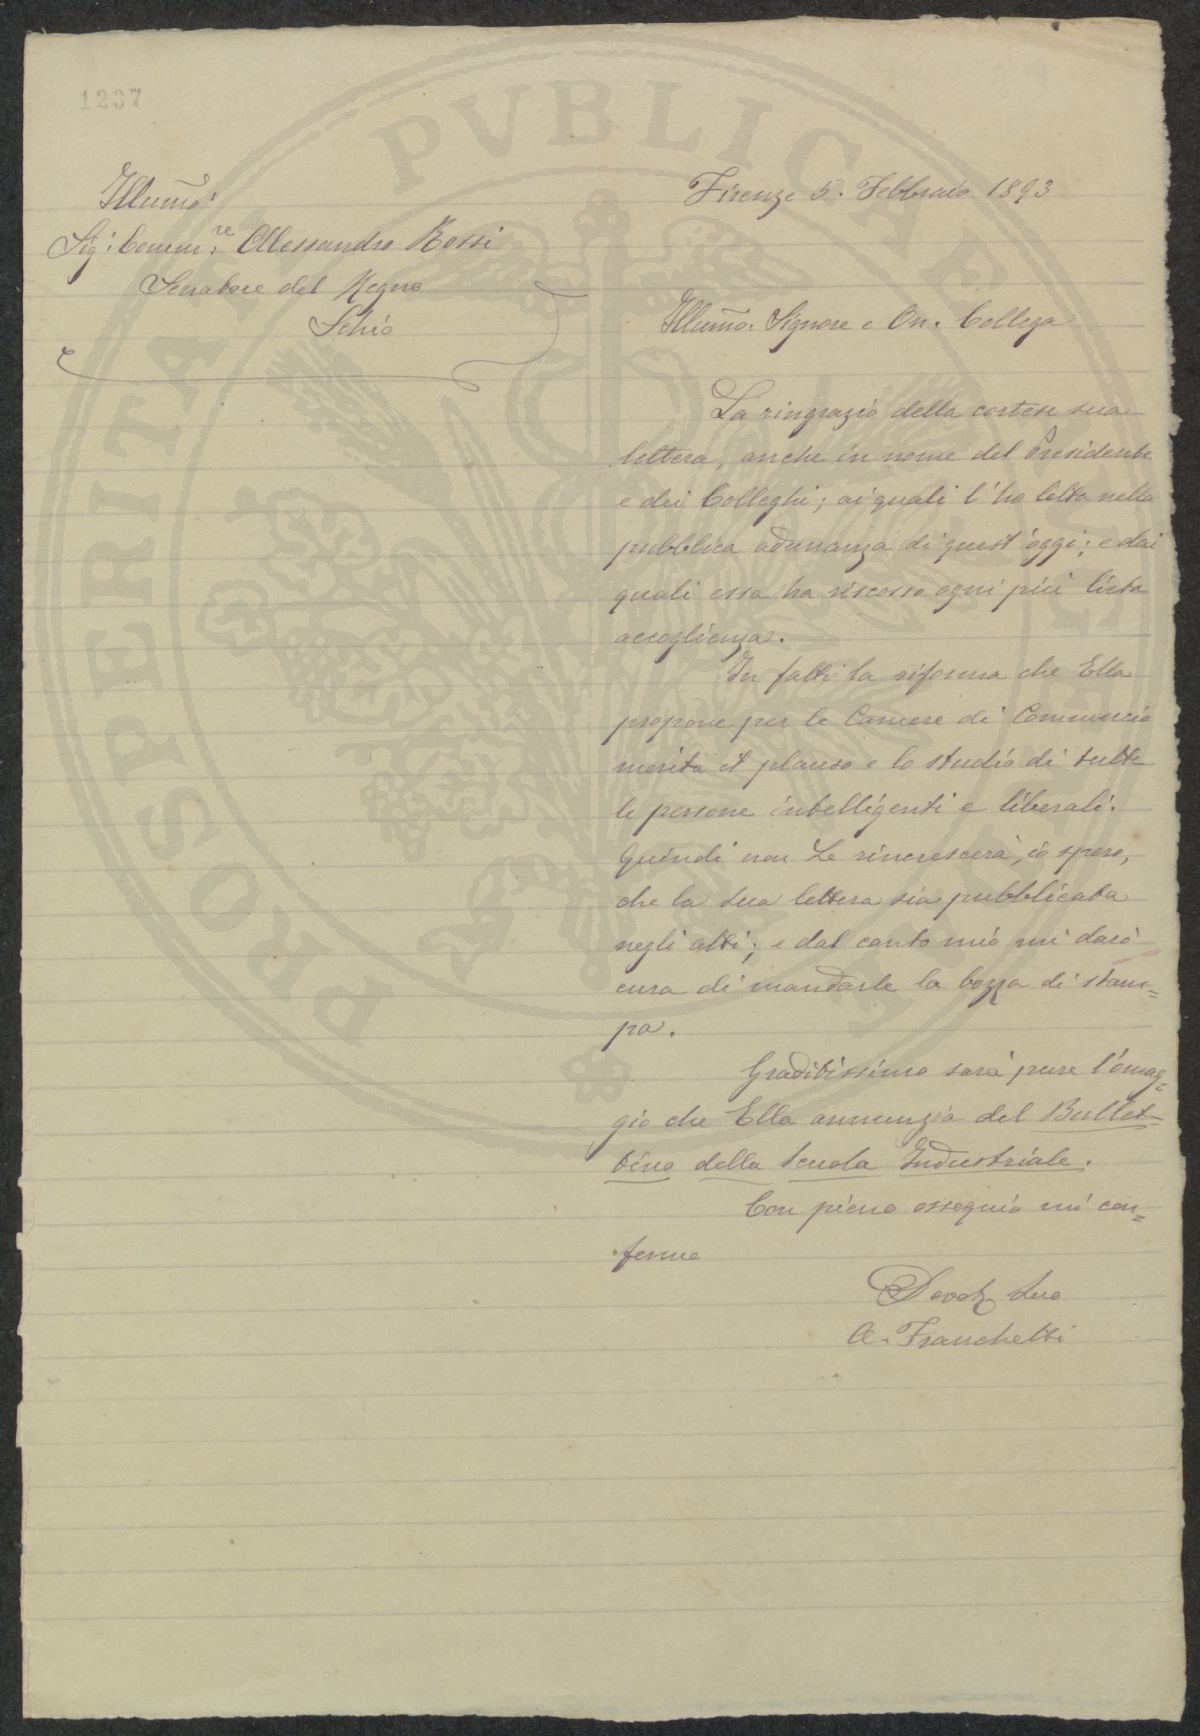 1237
Illumo:
Sig: Comm:re Alessandro Rossi
Senatore del Regno
Schio
Firenze 5. Febbraio 1893
Illumo: Signore e On. Collega
La ringrazio della cortese sua
lettera, anche in nome del Presidente
e dei Colleghi; ai quali l'ho letta nella
pubblica adunanza di quest'oggi; e dai
quali essa ha riscosso ogni più lieta
accoglienza.
In fatti la riforma che Ella
propone per le Camere di Commercio
merita il plauso e lo studio di tutte
le persone intelligenti e liberali.
Quindi non Le rincrescerà, io spero,
che la sua lettera sia pubblicata
negli atti; e dal canto mio mi darò
cura di mandarle la bozza di stam=
pa.
Graditissimo sarà pure l'omag=
gio che Ella annunzia del Bullet=
tino della Scuola Industriale.
Con pieno ossequio mi con=
fermo
Devot. Suo
A. Franchetti
PROSPERITATI PVBLICAE